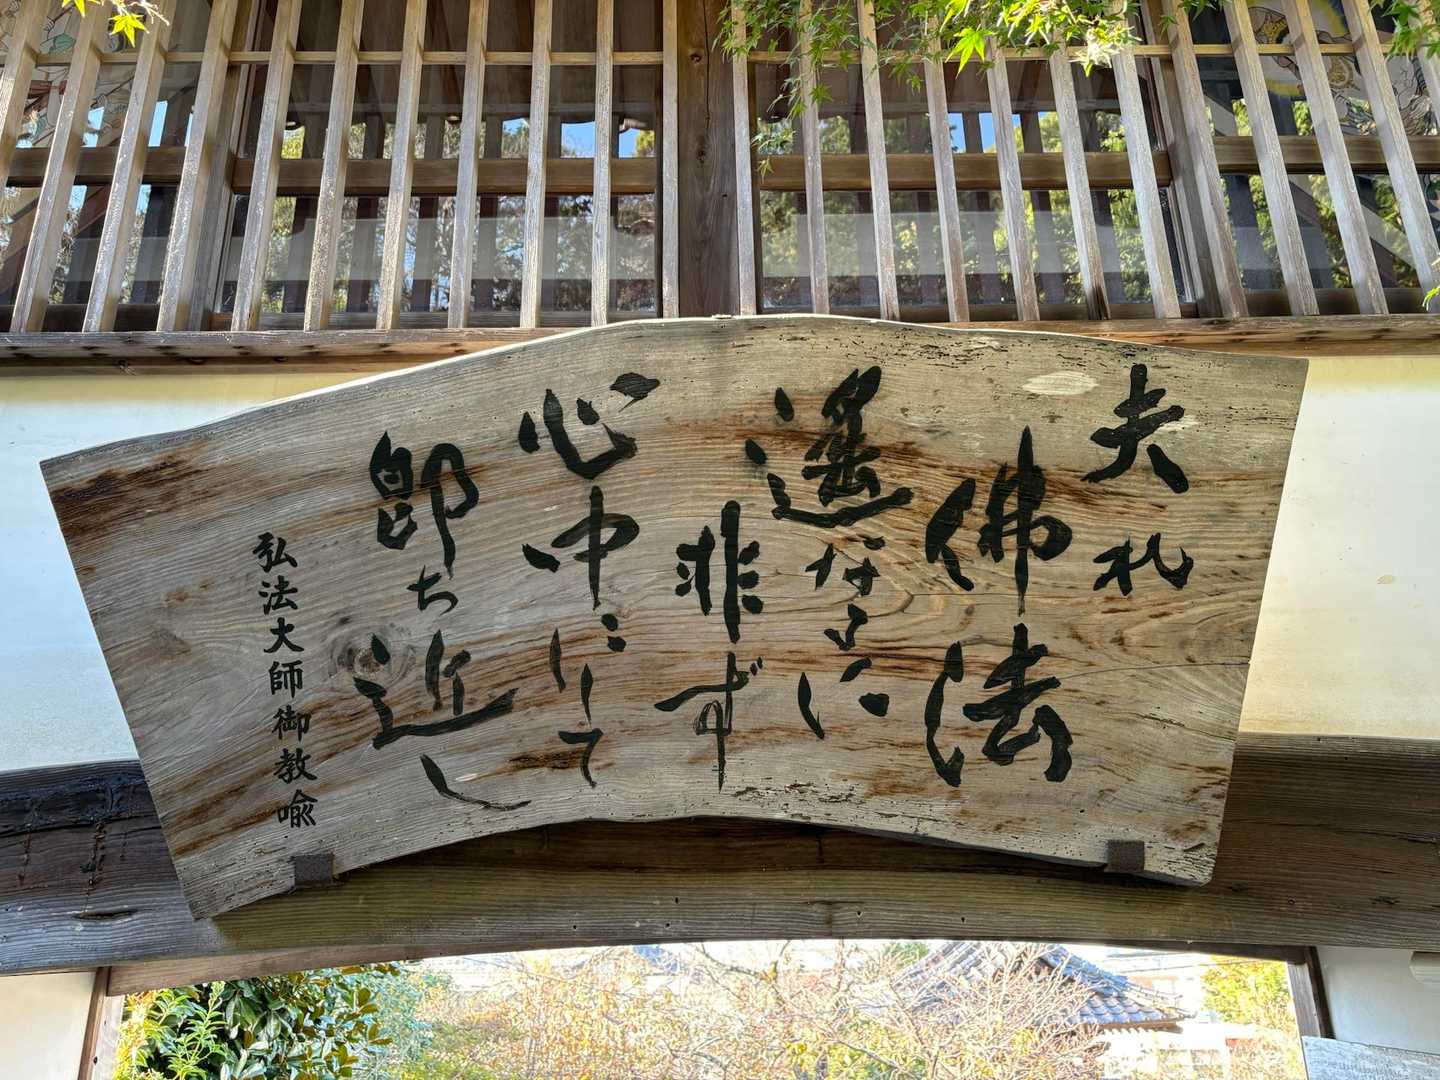 夫れ
佛法
遥なるに
非ず
心中にして
即ち近し
弘法大師御教喩